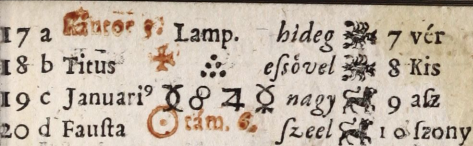 17 a Lamp. hideg 7 vér
18 b Titus ✠ eſsövel 8 Kis
19 c Januari⁹ ☿ ☍ ♃ ☿ nagy 9 aſz
20 d Fauſta ☉ tám. 6. ſzeel 10 ſzony